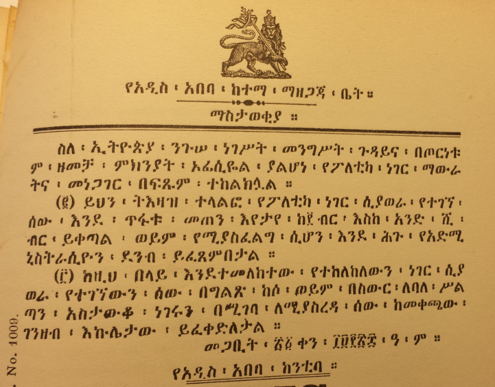 የአዲስ ፡ አበባ ፡ ከተማ ፡ ማዘጋጃ ፡ ቤት ።
ማስታወቂያ ።
ስለ ፡ ኢትዮጵያ ፡ ንጉሠ ፡ ነገሥት ፡ መንግሥት ፡ ጉዳይና ፡ በጦርነቱ
ም ፡ ዘመቻ ፡ ምክንያት ፡ አፊሲዬል ፡ ያልሆነ ፡ የፖለቲካ ፡ ነገር ፡ ማውራ
ትና ፡ መነጋገር ፡ በፍጹም ፡ ተከልክሏል ።
(፪) ይህን ፡ ትእዛዝ ፡ ተላልፎ ፡ የፖለቲካ ፡ ነገር ፡ ሲያወራ ፡ የተገኘ ፡
ሰው ፡ እንደ ፡ ጥፋቱ ፡ መጠን ፡ እየታየ ፡ ብር ፡ እስከ ፡ አንድ ፡ ሺ ፡
ብር ፡ ይቀጣል ፡ ወይም ፡ የሚያስፈልግ ፡ ሲሆን ፡ እንደ ፡ ሕጉ ፡ የአድሚ
ኒስትራሲዮን ፡ ደንብ ፡ ይፈጸምበታል ።
(፫) ከዚህ ፡ በላይ ፡ እንደተመለከተው ፡ የተከለከለውን ፡ ነገር ፡ ሲያ
ወራ ፡ የተገኘውን ፡ ሰው ፡ በግልጽ ፡ ከሶ ፡ ወይም ፡ በስውር ፡ ለባለ ፡ ሥል
ጣን ፡ አስታውቆ ፡ ነገሩን ፡ በሚገባ ፡ ለሚያስረዳ ፡ ሰው ፡ ከመቀጫው ፡
ገንዘብ ፡ እኩሌታው ፡ ይፈቀድለታል ።
መጋቢት ፡ ቀን ፡ ፲፱፻፳፰ ፡ ዓ ፡ ም ።
የአዲስ ፡ አበባ ፡ ከንቲባ ።
No. 1009.